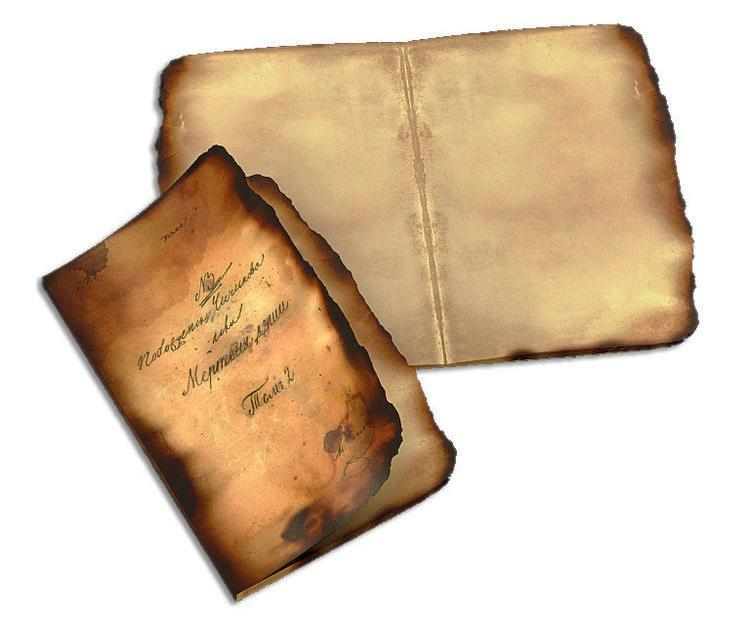 №3
Похождения Чичикова
или
Мертвыя души
Томъ 2